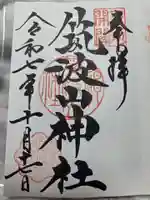 奉拝
筑波山神社
令和七年十一月十七日